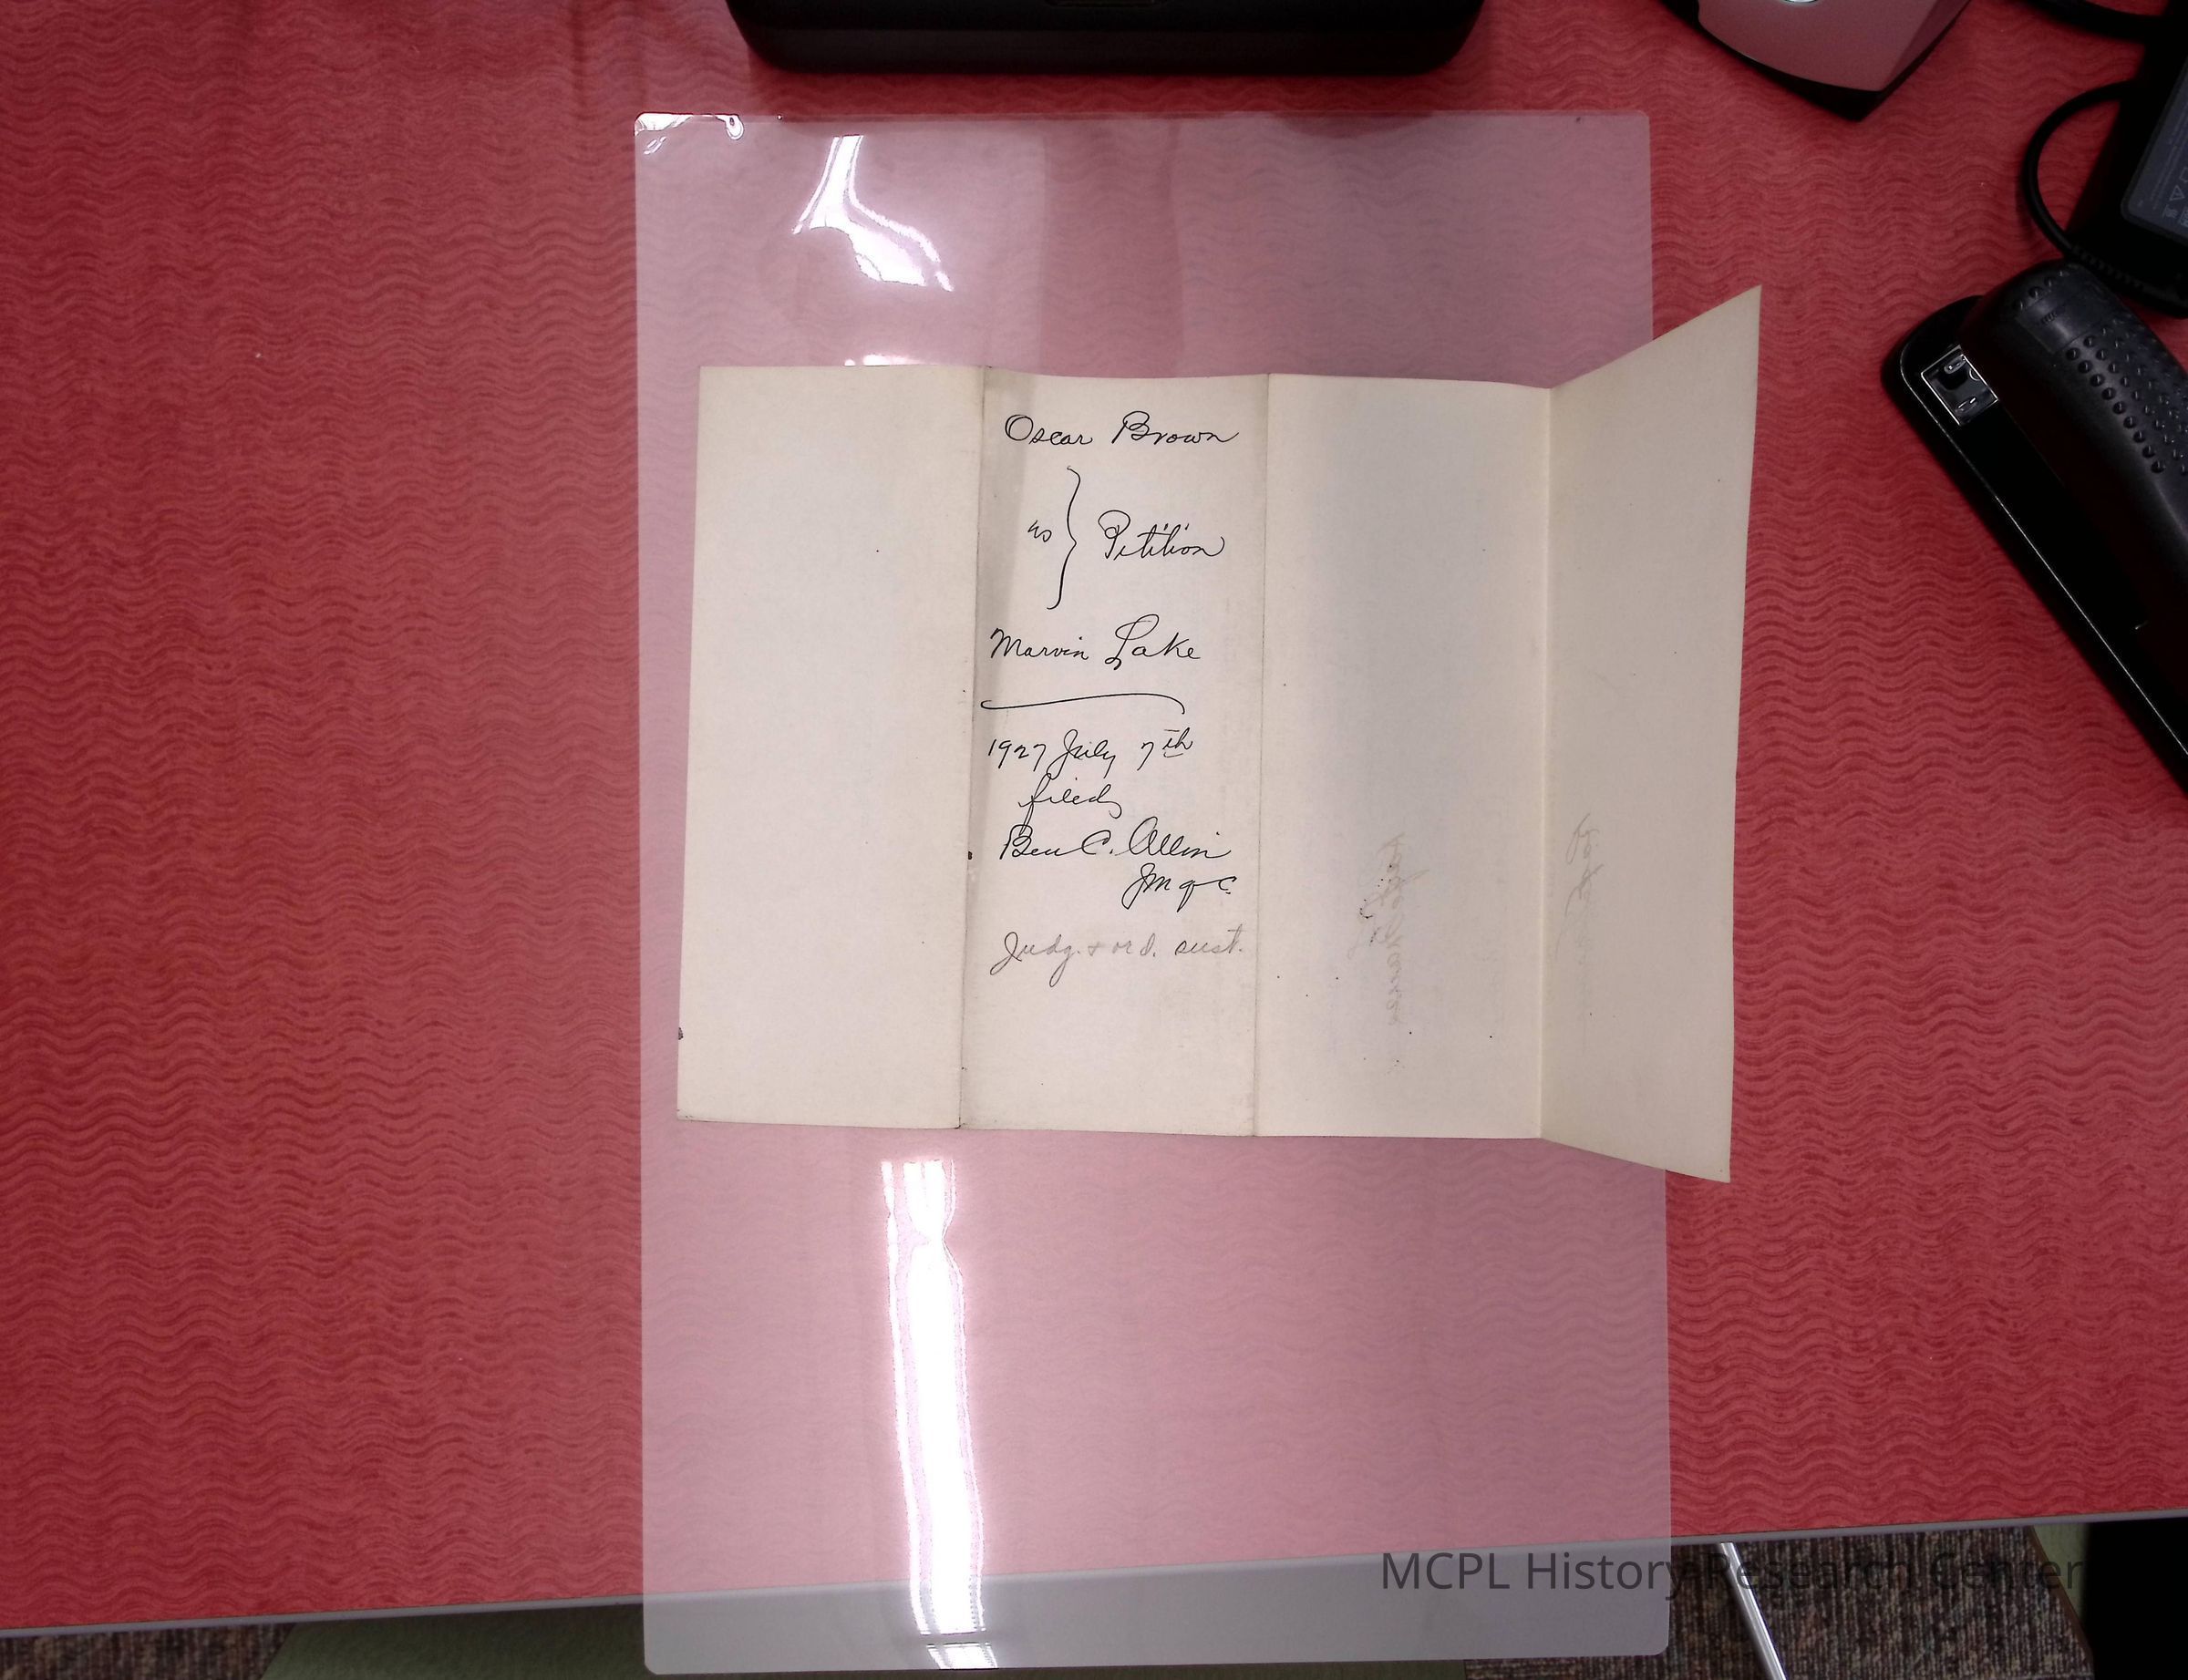 Oscar Brown
vs } Petition
Marvin Lake
1927 July 7th
filed
Ben C. Allin
JMqc
Judg. & ord. sust.
MCPL History Research Center